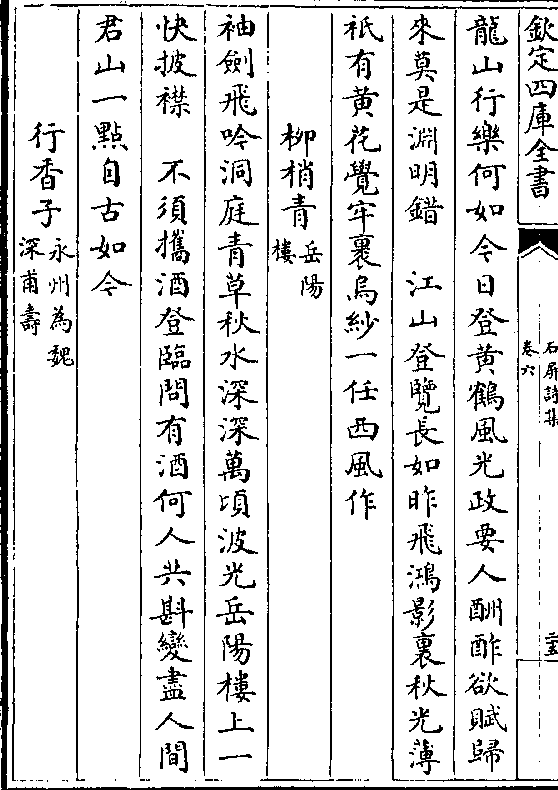 欽定四庫全書
石屏詩集
卷六
龍山行樂何如今日登黃鶴風光政要人酬酢欲賦歸
來莫是淵明錯　江山登覽長如昨飛鴻影裏秋光薄
祇有黃花覺牢裹烏紗一任西風作
柳梢青岳陽樓
袖劍飛吟洞庭青草秋水深深萬頃波光岳陽樓上一
快披襟　不須攜酒登臨問有酒何人共斟變盡人間
君山一點自古如今
行香子永州為魏深甫壽